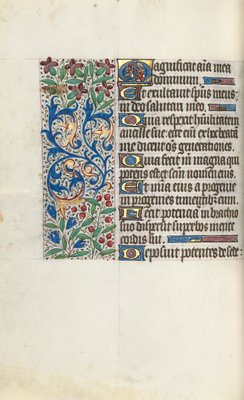 Magnificat aīa mea
dominum.
Et exultavit spūs meus
in deo salutari meo.
Quia respexit humilitatem
ancille sue: ecce enī ex hoc beatā
me dicent oēs generationes.
Quia fecit m̄ magna qui
potens est et scm̄ nomen eius.
Et mīa eius a progenie
in progenies timentibȝ eum.
Fecit potenciā in brachio
suo dispersit superbos mente
cordis sui.
Deposuit potentes de sede: